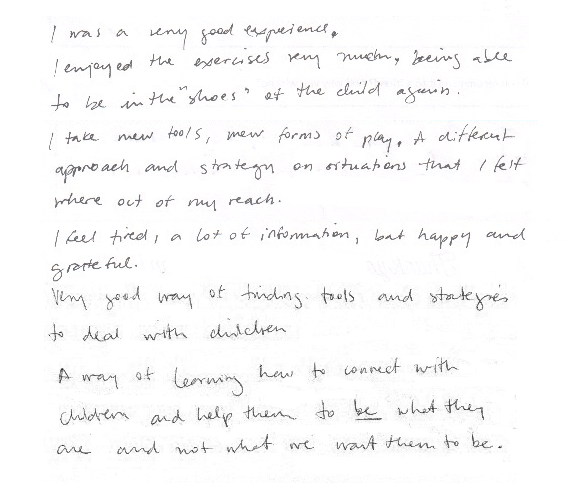 I was a very good experience.
I enjoyed the exercises very much, being able
to be in the "shoes" of the child again.
I take new tools, new forms of play. A different
approach and strategy on situations that I felt
where out of my reach.
I feel tired, a lot of information, but happy and
grateful.
Very good way of finding tools and strategies
to deal with children
A way of learning how to connect with
children and help them to be what they
are and not what we want them to be.